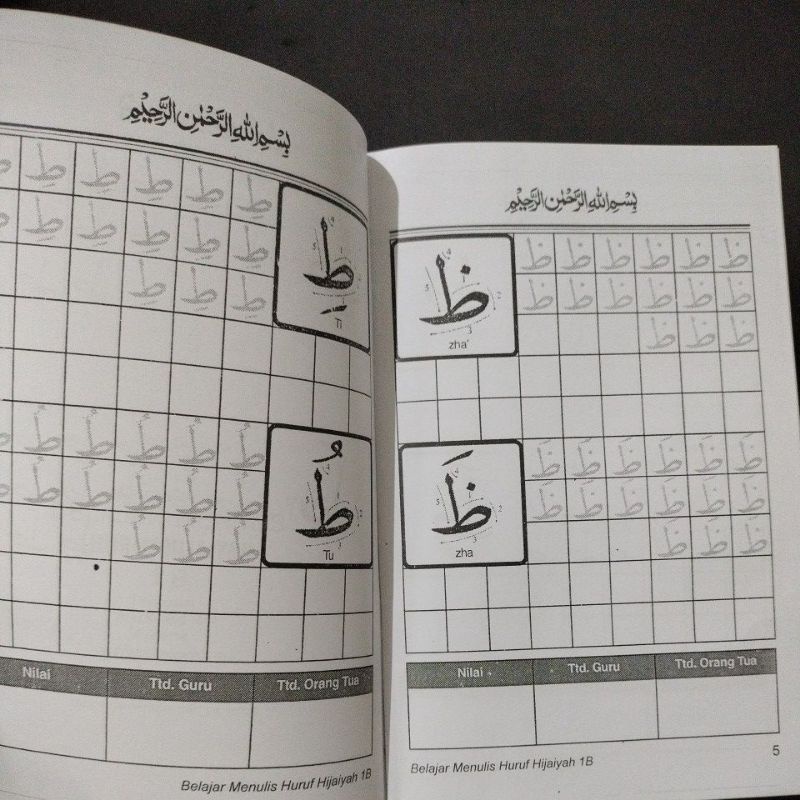 بِسْمِ اللهِ الرَّحْمٰنِ الرَّحِيْمِ
طِ طِ طِ طِ طِ
طِ طِ طِ طِ طِ
طِ طِ طِ
طِ
Ti
طُ طُ طُ طُ طُ
طُ طُ طُ طُ طُ
طُ طُ طُ
طُ
Tu
Nilai Ttd. Guru Ttd. Orang Tua
Belajar Menulis Huruf Hijaiyah 1B
بِسْمِ اللهِ الرَّحْمٰنِ الرَّحِيْمِ
ظ
zha'
ظ ظ ظ ظ ظ ظ
ظ ظ ظ ظ ظ ظ
ظ ظ ظ
ظَ
zha
ظَ ظَ ظَ ظَ ظَ ظَ
ظَ ظَ ظَ ظَ ظَ ظَ
ظَ ظَ ظَ
Nilai Ttd. Guru Ttd. Orang Tua
Belajar Menulis Huruf Hijaiyah 1B
5